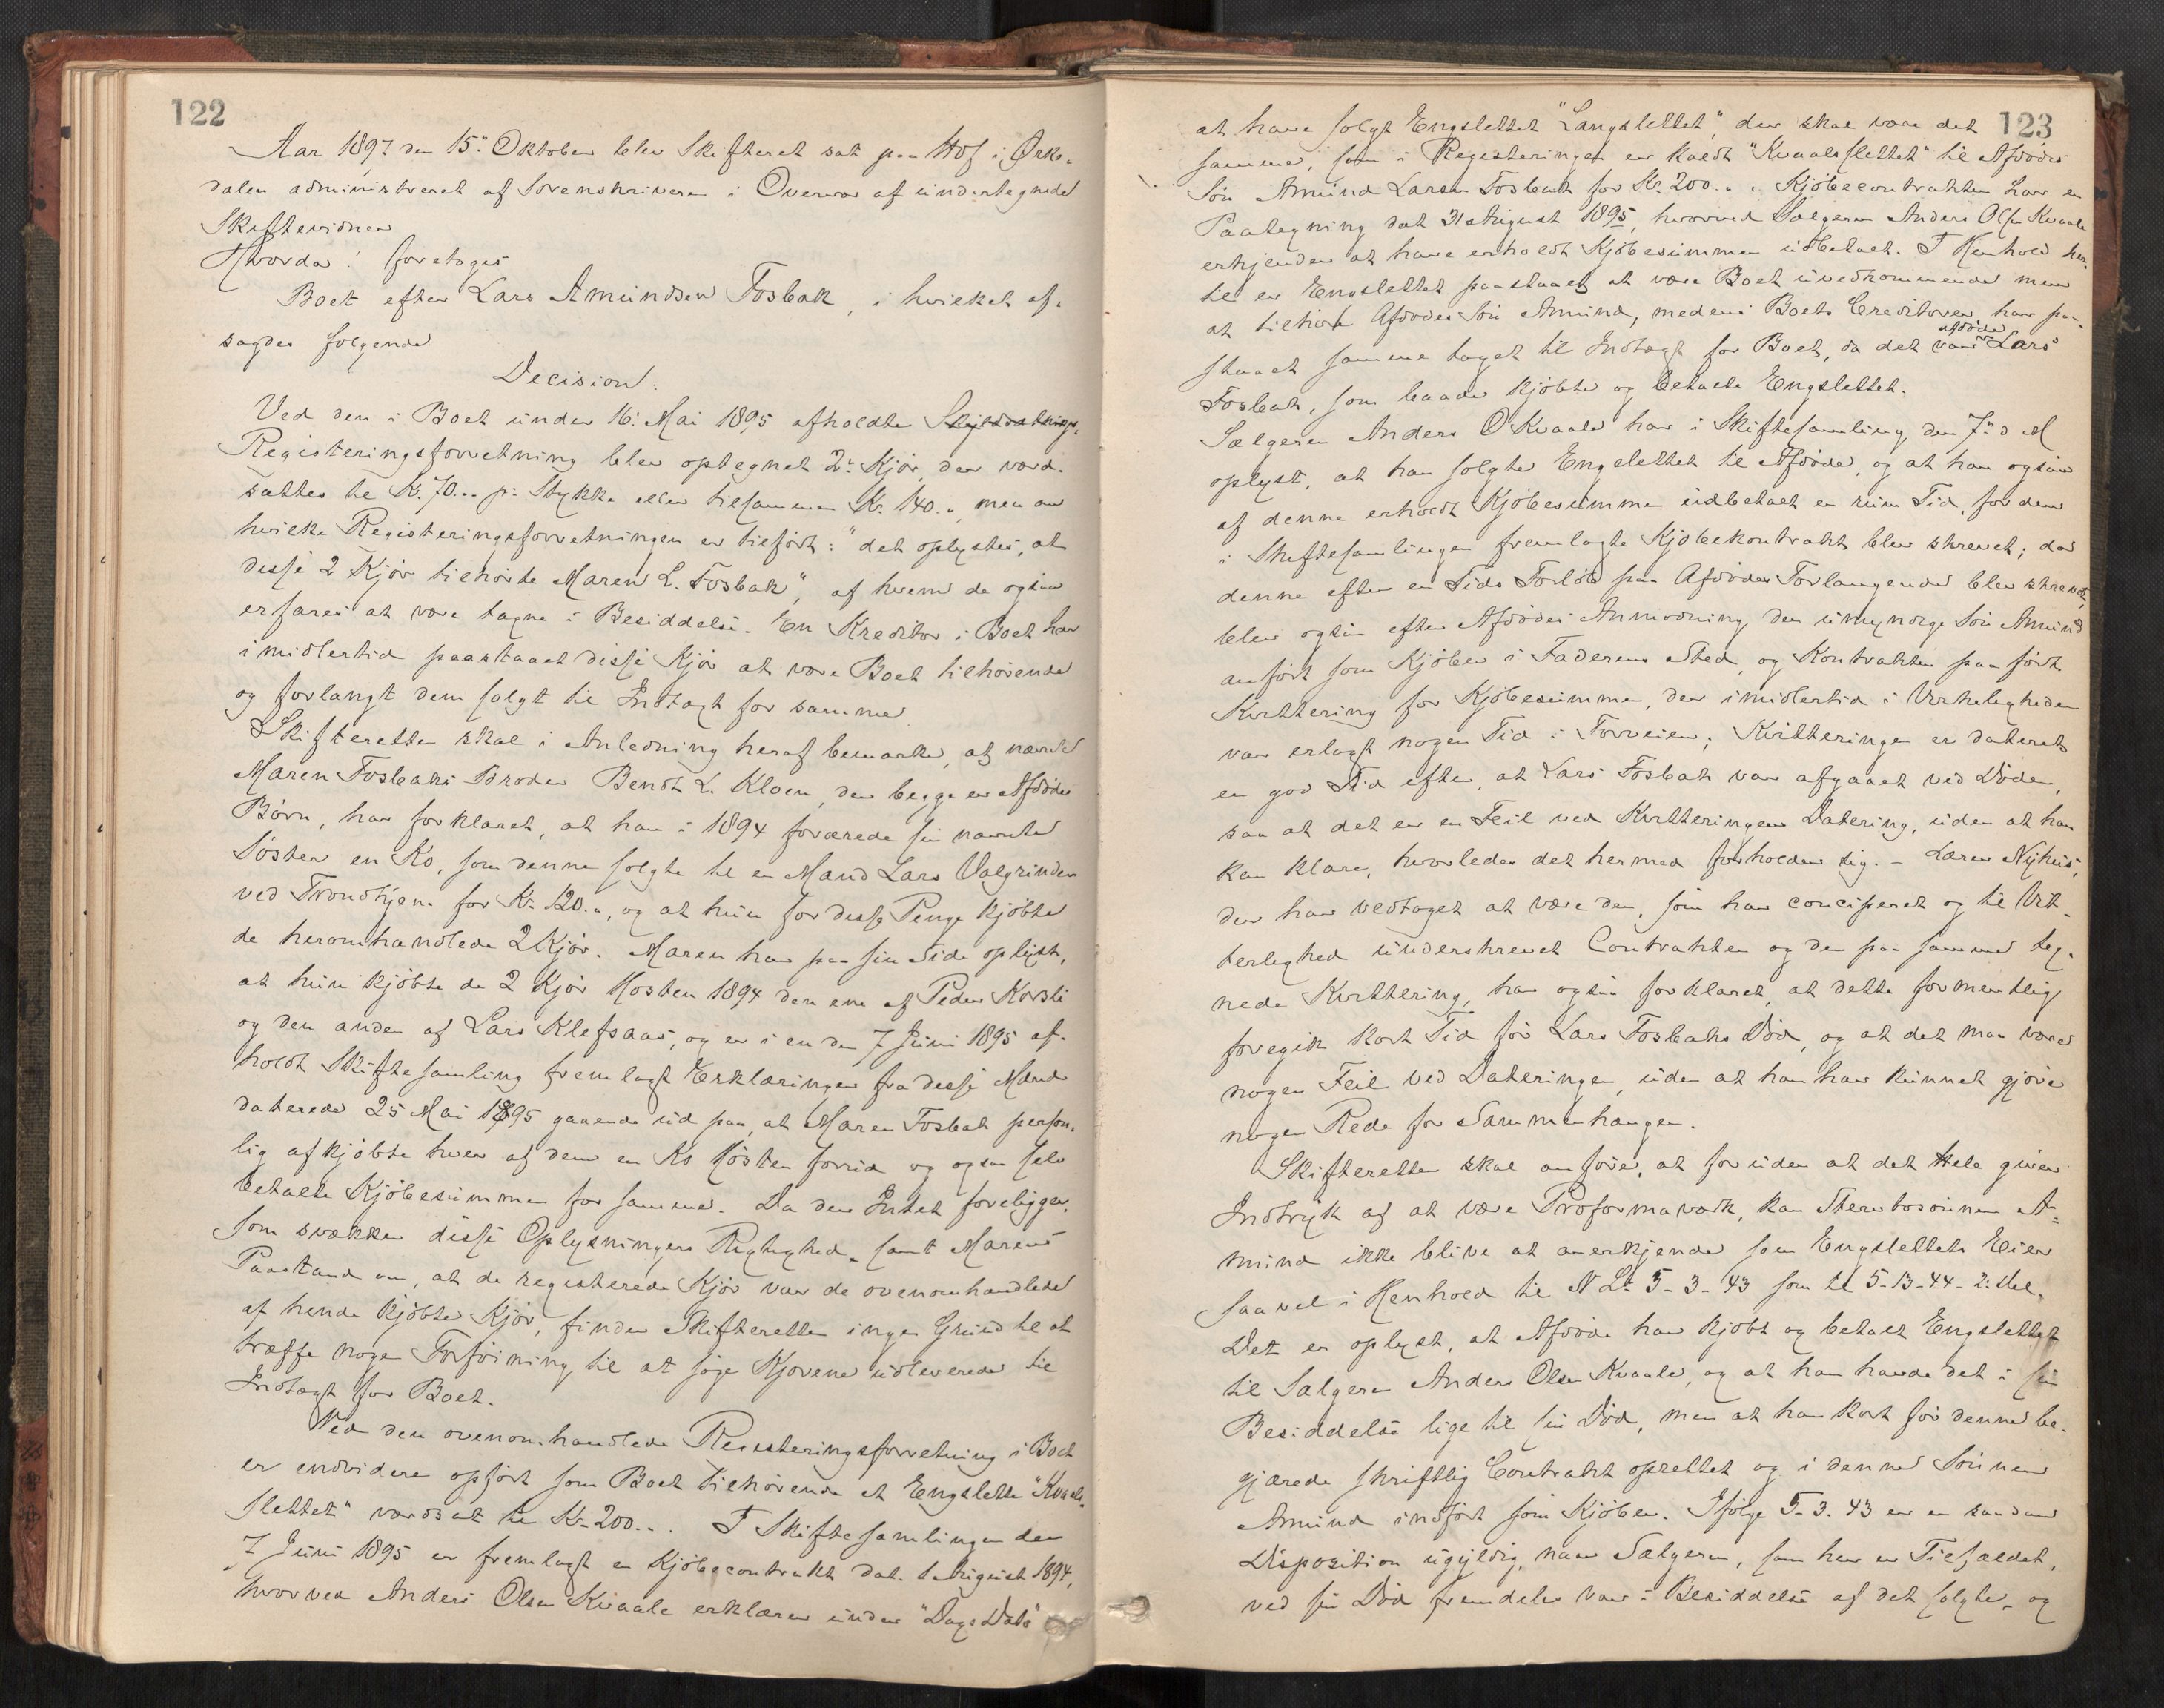 122
Aar 1897 den 15de Oktober blev Skifteret sat paa Hof i Orke-
dalen administreret af Sorenskriveren i Overvær af undertegnede
Skiftevidner
Hvorda! foretages
Boet efter Lars Amundsen Fosbak, i hvilket af-
sagdes følgende
Decision:
Ved den i Boet under 16. Mai 1895 afholdte
Registeringsforretning blev optegnet 2de Kjør, der værd-
sattes til Kr. 70.. pr. Stykke eller tilsammen Kr. 140.., men om
hvilke Registeringsforretningen er tilført: "det oplystes, at
disse 2 Kjør tilhørte Maren L. Fosbak", af hvem de ogsaa
erfares at være tagne i Besiddelse. En Kreditor i Boet har
imidlertid paastaaet disse Kjør at være Boet tilhørende
og forlangt dem solgt til Indtægt for samme.
Skifteretten skal i Anledning heraf bemærke, at nævnte
Maren Fosbaks Broder Bendt L. Kloen, der begge er Afdødes
Børn, har forklaret, at han i 1894 forærede sin nævnte
Søster en Ko, som denne solgte til en Mand Lars Valgrinden
ved Trondhjem for Kr. 120.., og at hun for disse Penge kjøbte
de heromhandlede 2 Kjør. Maren har paa sin Side oplyst,
at hun kjøbte de 2 Kjør Høsten 1894 den ene af Peder Korsli
og den anden af Lars Klefsaas, og er i en den 7 Juni 1895 af-
holdt Skiftesamling fremlagt Erklæringer fra disse Mænd
daterede 25 Mai 1895 gaaende ud paa, at Maren Fosbak person-
lig afkjøbte hver af dem en Ko Høsten forud og ogsaa selv
betalte Kjøbesummen for samme. Da der Intet foreligger,
som svækker disse Oplysningers Rigtighed, samt Marens
Paastand om, at de registerede Kjør var de ovenomhandlede
af hende kjøbte Kjør, finder Skifteretten ingen Grund til at
træffe nogen Forføining til at søge Kjørene udleverede til
Indtægt for Boet.
Ved den ovenomhandlede Registeringsforretning i Boet
er endvidere opført som Boet tilhørende et Engslette "Kvaals-
slettet" værdsat til Kr. 200... I Skiftesamlingen den
7 Juni 1895 er fremlagt en Kjøbecontrakt dat. 1 August 1894,
hvorved Anders Olsen Kvaale erklærer under "Dags Dato"
123
at have solgt Engslettet "Langslettet", der skal være det
samme, som i Registeringen er kaldt "Kvaalsslettet" til Afdødes
Søn Amund Larsen Fosbak for Kr. 200... Kjøbecontrakten har en
Paategning dat 31 August 1895, hvorved Sælgeren Anders Olsen Kvaale
erkjender at have erholdt Kjøbesummen udbetalt. I Henhold her-
til er Engslettet paastaaet at være Boet uvedkommende men
at tilhøre Afdødes Søn Amund, medens Boets Creditorer har paa-
staaet samme taget til Indtægt for Boet, da det var afdøde Lars
Fosbak, som baade kjøbte og betalte Engslettet.
Sælgeren Anders O Kvaale har i Skiftesamling den 7de d M
oplyst, at han solgte Engslettet til Afdøde, og at han ogsaa
af denne erholdt Kjøbesummen udbetalt en rum Tid, før den
i Skiftesamlingen fremlagte Kjøbekontrakt blev skrevet; da
denne efter en Tids Forløb paa Afdødes Forlangende blev skrevet,
blev ogsaa efter Afdødes Anmodning den umyndige Søn Amund
anført som Kjøber i Faderens Sted, og Kontrakten paaført
Kvittering for Kjøbesummen, der imidlertid i Virkeligheden
var erlagt nogen Tid i Forveien; Kvitteringen er dateret
en god Tid efter, at Lars Fosbak var afgaaet ved Døden,
saa at det er en Feil ved Kvitteringens Datering, uden at han
kan klare, hvorledes det hermed forholder sig. - Lærer Nyhus,
der har vedtaget at være den, som har conciperet og til Vit-
terlighed underskrevet Contrakten og den paa samme teg-
nede Kvittering, har ogsaa forklaret, at dette formentlig
foregik kort Tid før Lars Fosbaks Død, og at det maa være
nogen Feil ved Dateringen uden at han har kunnet gjøre
nogen Rede for Sammenhængen.
Skifteretten skal anføre, at foruden at det Hele giver
Indtryk af at være Proformaværk, kan Sterbosønnen A-
mund ikke blive at anerkjende som Engslettets Eier
saavel i Henhold til N L's 5-3-43 som til 5-13-44-2. Del.
Det er oplyst, at Afdøde har kjøbt og betalt Engslettet
til Sælgeren Anders Olsen Kvaale, og at han havde det i sin
Besiddelse lige til sin Død, men at han kort før denne be-
gjærede skriftlig Contrakt oprettet og i denne Sønnen
Amund indført som Kjøber. Ifølge 5-3-43 er en saadan
Disposition ugyldig, naar Sælgeren, som her er Tilfældet,
ved sin Død fremdeles var i Besiddelse af det solgte, og